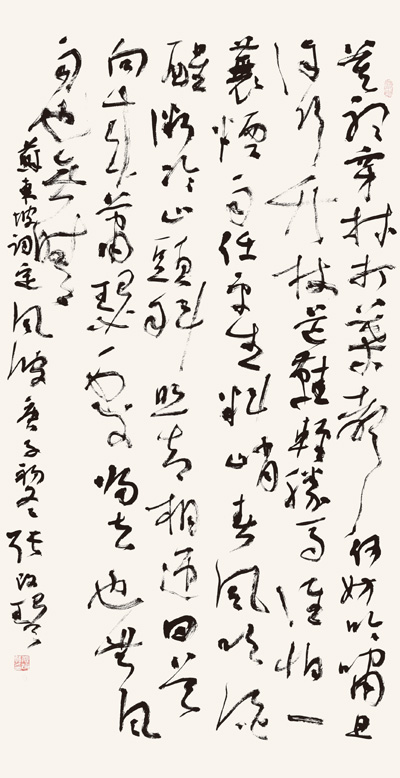 莫聽穿林打葉聲何妨吟嘯且
徐行竹杖芒鞋輕勝馬誰怕一
蓑煙雨任平生料峭春風吹酒
醒微冷山頭斜照却相迎回首
向来蕭瑟處歸去也無風
雨也無晴
蘇東坡詞定風波庚子初冬張改琴